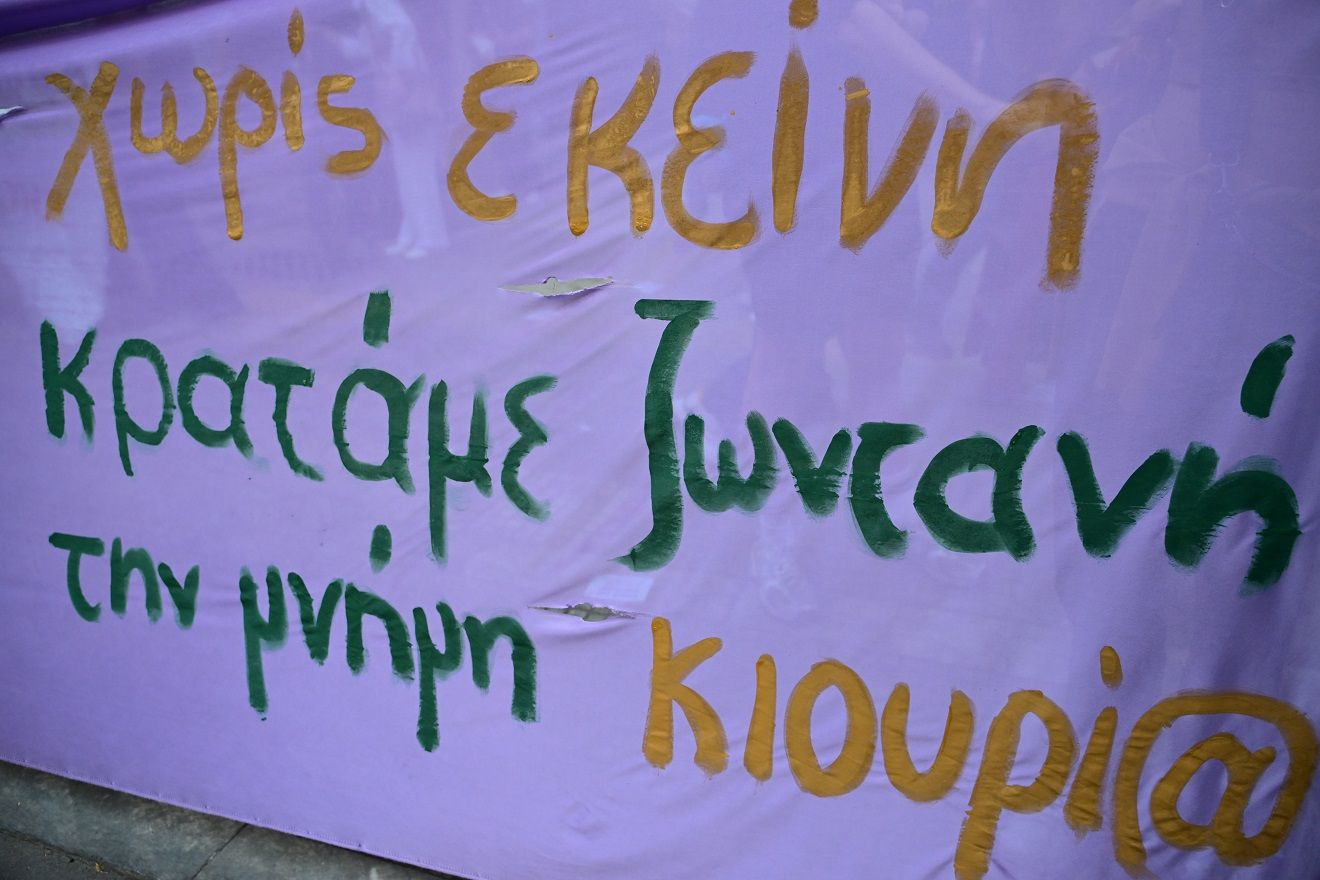 χωρίς εκείνη
κρατάμε ζωντανή
την μνήμη κιουρί@